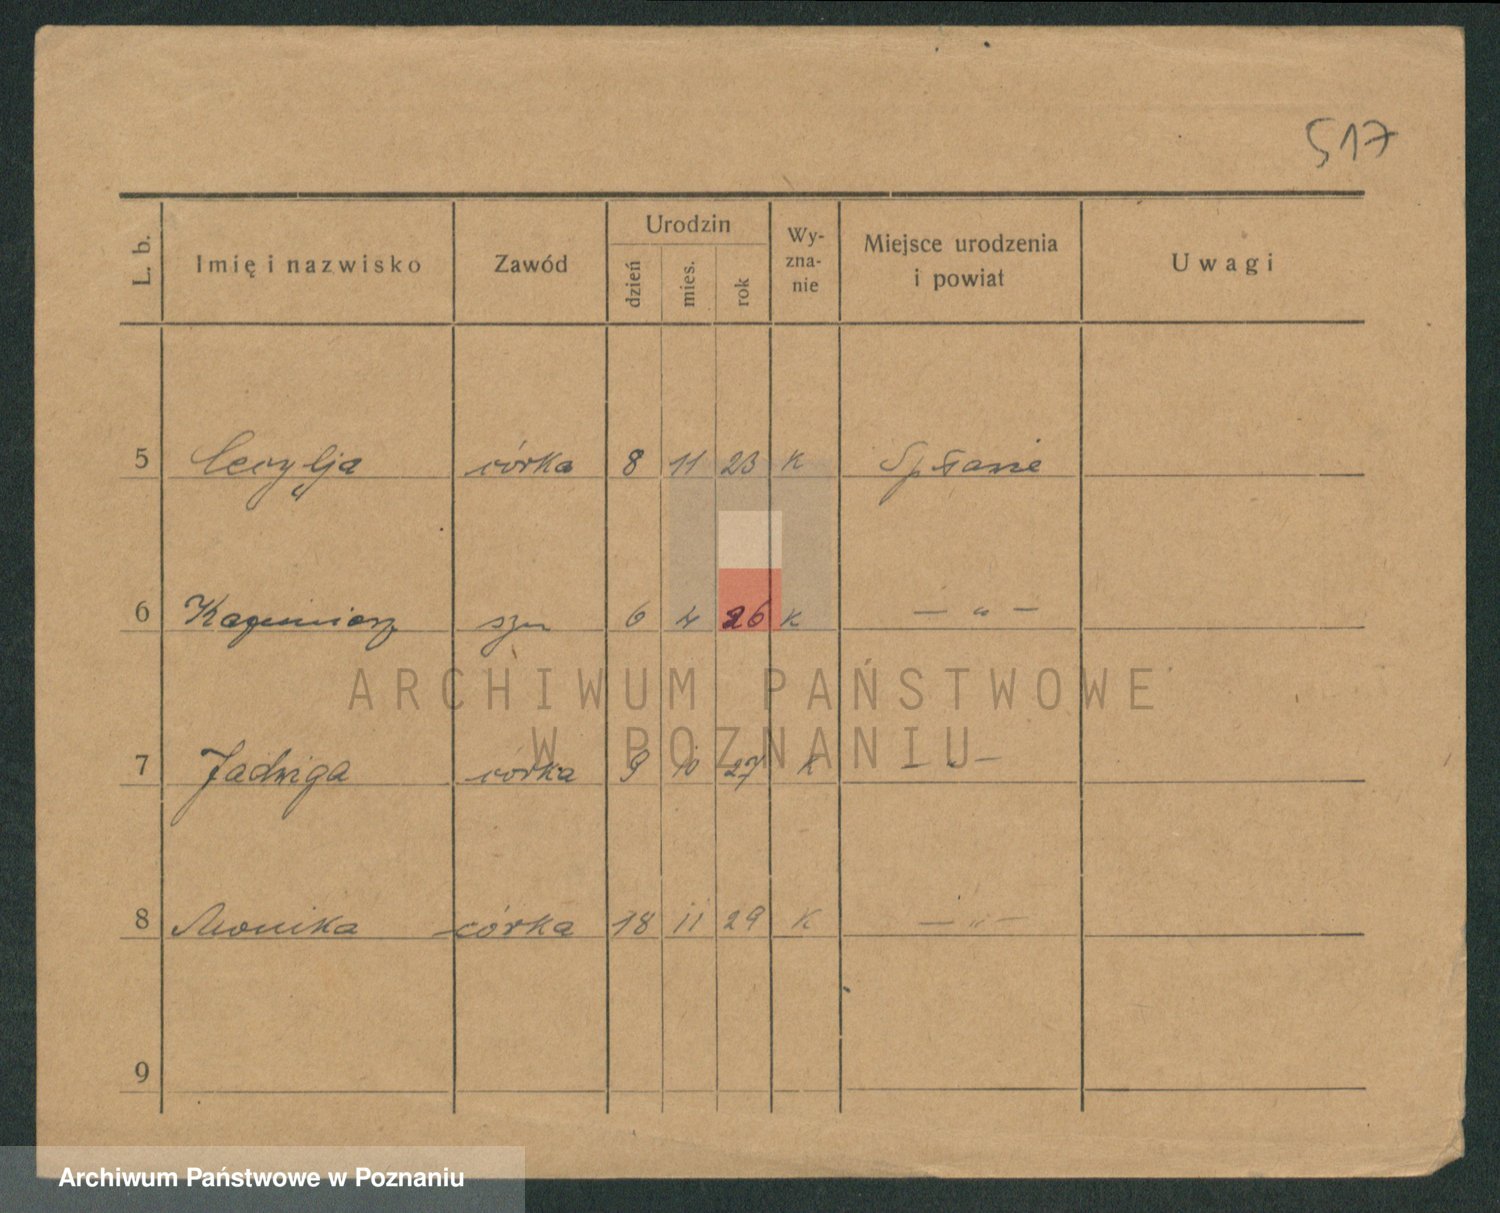 517
L. b. Imię i nazwisko Zawód Urodzin dzień mies. rok Wy-zna-nie Miejsce urodzenia i powiat Uwagi
5 Cecylja córka 8 11 23 K Spławie
6 Kazimierz syn 6 4 26 K — „ —
ARCHIWUM PAŃSTWOWE
W POZNANIU
7 Jadwiga córka 9 10 27 K — „ —
8 Monika córka 18 11 29 K — „ —
9
Archiwum Państwowe w Poznaniu